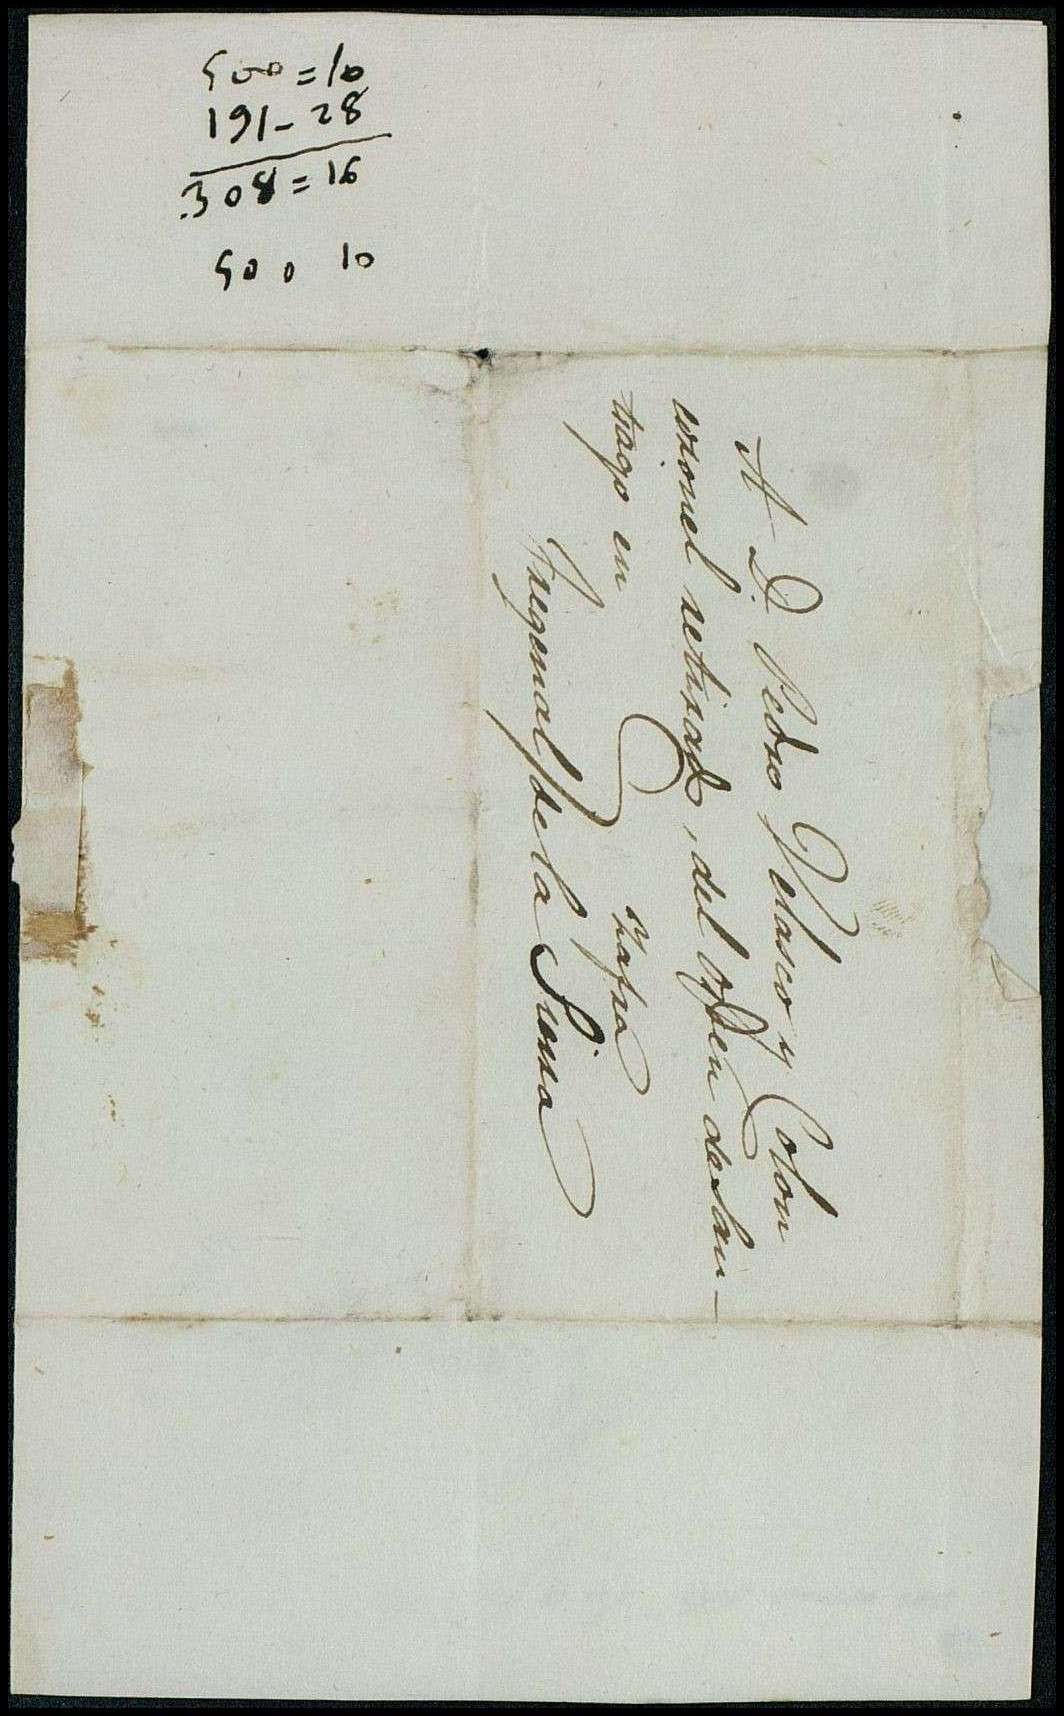 500=10
191-28
308=16
500 10
A D. Pedro Velasco y Colon
coronel retirado, del orden de San-
tiago en
Zafra
Fregenal de la Sierra